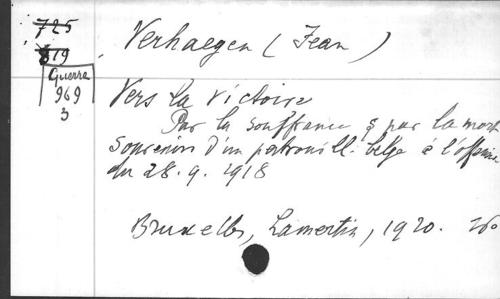 725
819
Guerre
969
3
Verhaegen (Jean)
Vers la victoire
Par la souffrance & par la mort
Souvenirs d'un patrouill. belge à l'offensive
du 28.9.1918
Bruxelles, Lamertin, 1920.